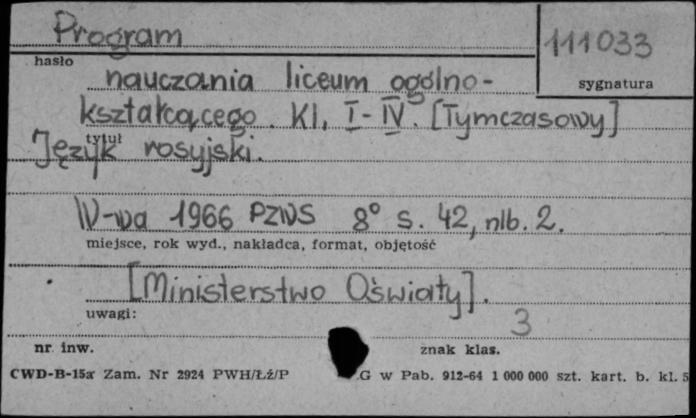 Program
111033
hasło
sygnatura
nauczania liceum ogólno-
kształcącego. Kl. I-IV. [Tymczasowy]
tytuł
Język rosyjski.
W-wa 1966 PZWS 8° s. 42, nlb. 2.
miejsce, rok wyd., nakładca, format, objętość
[Ministerstwo Oświaty].
uwagi:
3
nr inw.
znak klas.
CWD-B-15a Zam. Nr 2924 PWH/Łź/P
G w Pab. 912-64 1 000 000 szt. kart. b. kl. 5